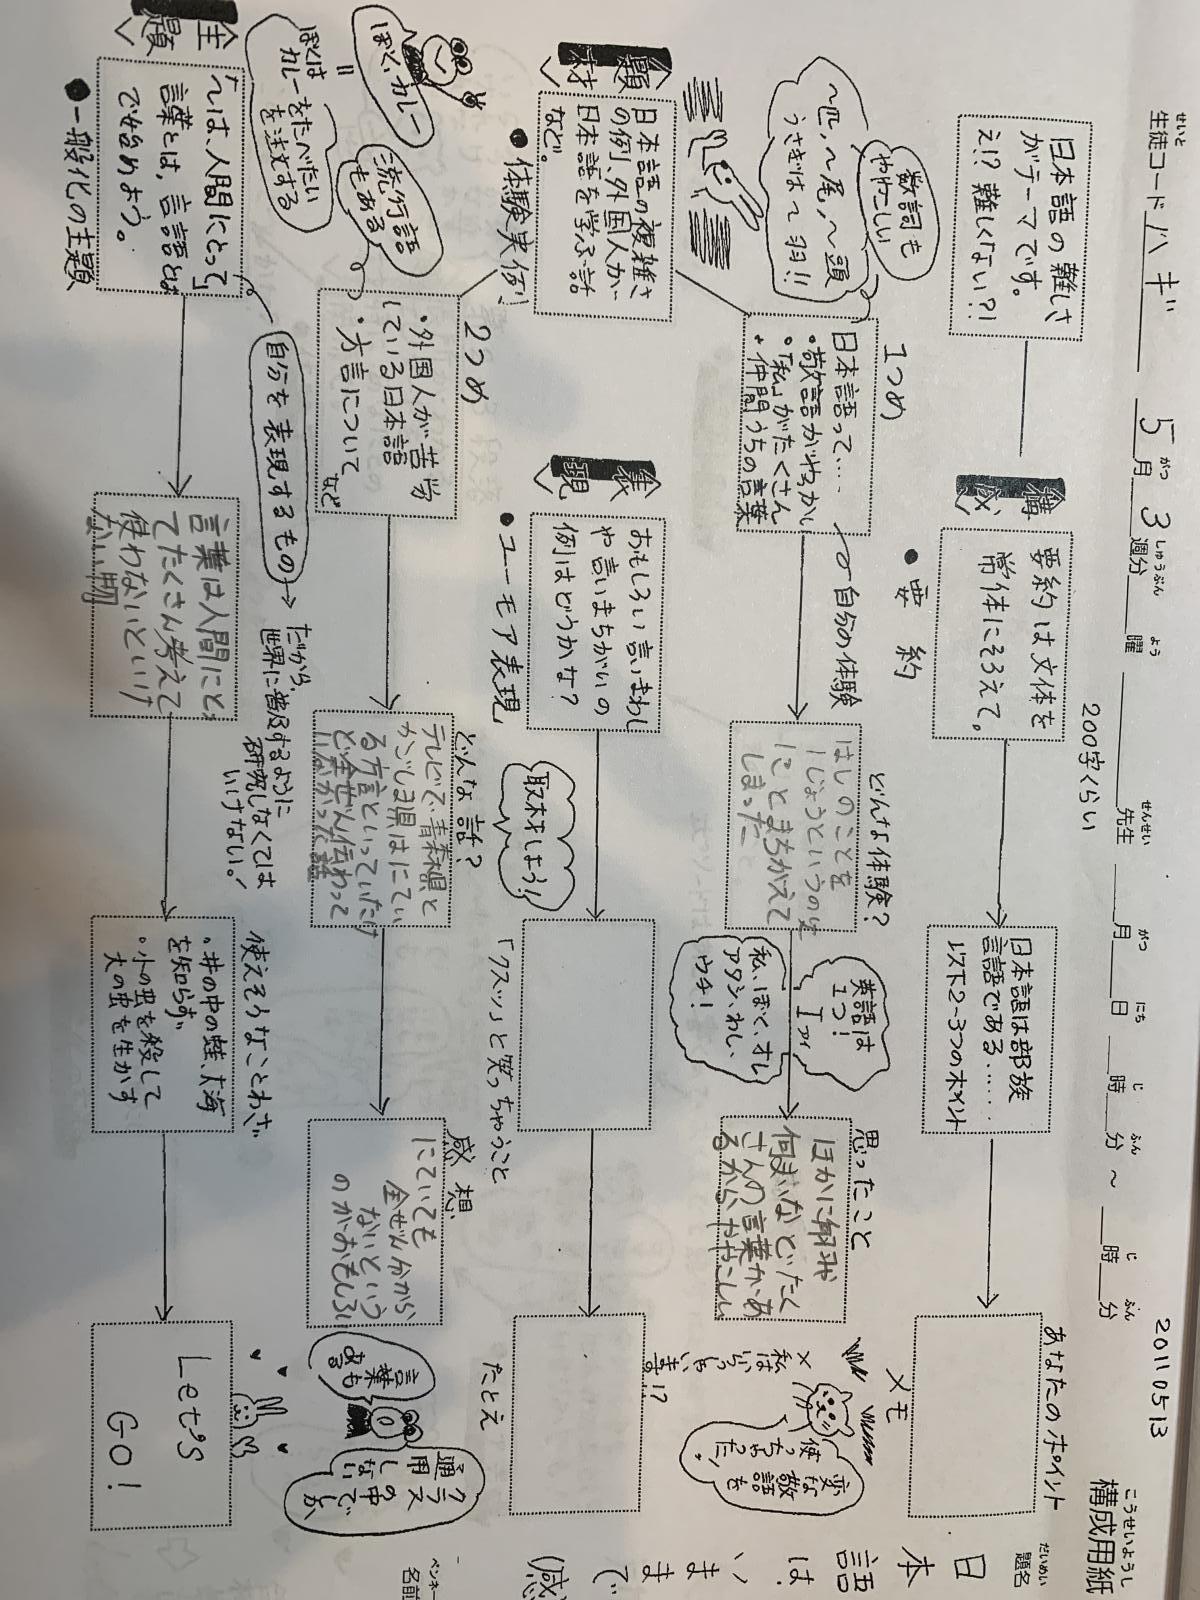 20110513
構成用紙
こうせいようし
生徒コード ハギ 5月3週分 曜 先生 月 日 時 分～ 時 分
せいと
がつ
しゅうぶん
よう
せんせい
がつ
にち
じ
ふん
じ
ふん
200字くらい
題名
だいめい
日本語は、いままで
感
ペンネー
名前
構成
日本語の難しさ
がテーマです。
え!?難しくない?!
・要約
要約は文体を
常体にそろえて。
日本語は部族
言語である……
以下2～3つのポイント
あなたのポイント
メモ
題材
日本語の複雑さ
の例、外国人が
日本語を学ぶ話
など。
・体験実例
数詞も
ややこしい
～匹、～尾、～頭
うさぎは～羽!!
1つめ
日本語って……
・敬語がむずかしい
・「私」がたくさん
・仲間うちの言葉
自分の体験
どんな体験?
はしのことを
にことまちがえて
しまった
英語は
1つ!
I アイ
私、ぼく、オレ
アタシ、わし、
ウチ!
思ったこと
ほかに
さんの言葉があ
るからややこしい
×
私は
いらっしゃい
ます!?
変な
敬語を
使っちゃった!
2つめ
・外国人が苦労
している日本語
・方言について
など
どんな話?
テレビで、青森県と
かごしま県はにてい
る方言といっていたけ
ど全ぜん伝わって
いなかった話
感想
にていても
全ぜん分から
ないという
のがおもしろい
流行語
もある
ぼく、カレー
||
ぼくは
カレーをたべたい
を注文する
クラス
の中で
しか
通用
しない
言葉も
ある
表現
・ユーモア表現
おもしろい言いまわし
や言いまちがいの
例はどうかな?
取材をしよう!
「クスッ」と笑っちゃうこと
たとえ
主題
・一般化の主題
「～は、人間にとって」
言葉とは、言語とは
で始めよう。
自分を表現するもの
だから、
世界に普及するように
研究しなくては
いけない。!
言葉は人間にと
てたくさん考えて
使わないといけ
ない
使えそうなことわざ
・井の中の蛙、大海
を知らず
・小の虫を殺して
大の虫を生かす
Let's
GO!